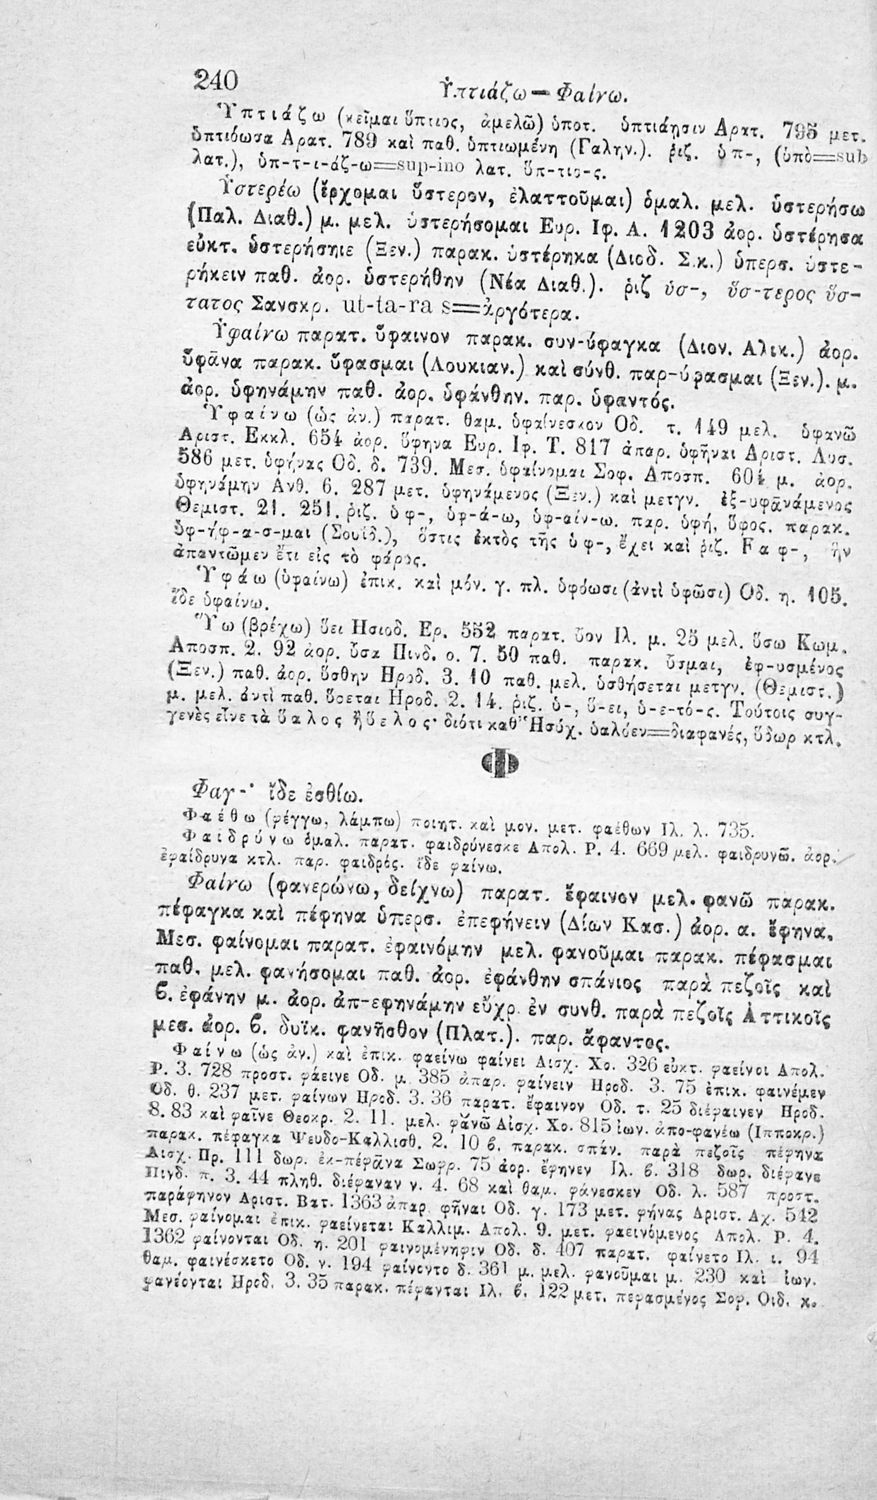 240
Ὑπτιάζω — Φαίνω.
Ὑπτιάζω (κεῖμαι ὕπτιος, ἀμελῶ) ὑποτ. ὑπτιάησιν Αρατ. 795 μετ.
ὑπτιόωσα Αρατ. 789 καὶ παθ. ὑπτιωμένη (Γαλην.). ῥιζ. ὑπ-, (ὑπὸ=sub
λατ.), ὑπ-τ-ι-άζ-ω=sup-ino λατ. ὕπ-τιο-ς.
Ὑστερέω (ἔρχομαι ὕστερον, ἐλαττοῦμαι) ὁμαλ. μελ. ὑστερήσω
(Παλ. Διαθ.) μ. μελ. ὑστερήσομαι Ευρ. Ιφ. Α. 1203 ἀορ. ὑστέρησα
εὐκτ. ὑστερήσηιε (Ξεν.) παρακ. ὑστέρηκα (Διοδ. Σ.κ.) ὑπερσ. ὑστε-
ρήκειν παθ. ἀορ. ὑστερήθην (Νέα Διαθ.). ῥιζ ὑσ-, ὕσ-τερος ὕσ-
τατος Σανσκρ. ut-ta-ra s=ἀργότερα.
Ὑφαίνω παρατ. ὕφαινον παρακ. συν-ύφαγκα (Διον. Αλικ.) ἀορ.
ὕφᾶνα παρακ. ὕφασμαι (Λουκιαν.) καὶ σύνθ. παρ-ύφασμαι (Ξεν.). μ.
ἀορ. ὑφηνάμην παθ. ἀορ. ὑφάνθην. παρ. ὑφαντός.
Ὑφαίνω (ὡς ἀν.) παρατ. θαμ. ὑφαίνεσκον Οδ. τ. 149 μελ. ὑφανῶ
Αριστ. Εκκλ. 654 ἀορ. ὕφηνα Ευρ. Ιφ. Τ. 817 ἀπαρ. ὑφῆναι Αριστ. Λυσ.
586 μετ. ὑφήνας Οδ. δ. 739. Μεσ. ὑφαίνομαι Σοφ. Αποσπ. 604 μ. ἀορ.
ὑφηνάμην Ανθ. 6. 287 μετ. ὑφηνάμενος (Ξεν.) καὶ μετγν. ἐξ-υφᾱνάμενος
Θεμιστ. 21. 251. ῥιζ. ὑφ-, ὑφ-ά-ω, ὑφ-αίν-ω. παρ. ὑφή, ὕφος. παρακ.
ὑφ-ήφ-α-σ-μαι (Σουίδ.), ὅστις ἐκτὸς τῆς ὑφ-, ἔχει καὶ ῥιζ. Fαφ-, ἣν
ἀπαντῶμεν ἔτι εἰς τὸ φάρος.
Ὑφάω (ὑφαίνω) ἐπικ. καὶ μόν. γ. πλ. ὑφόωσι (ἀντὶ ὑφῶσι) Οδ. η. 105.
ἴδε ὑφαίνω.
Ὕω (βρέχω) ὕει Ησιοδ. Ερ. 552 παρατ. ὗον Ιλ. μ. 25 μελ. ὕσω Κωμ.
Αποσπ. 2. 92 ἀορ. ὗσα Πινδ. ο. 7. 50 παθ. παρακ. ὗσμαι, ἐφ-υσμένος
(Ξεν.) παθ. ἀορ. ὕσθην Ηροδ. 3. 10 παθ. μελ. ὑσθήσεται μετγν. (Θεμιστ.)
μ. μελ. ἀντὶ παθ. ὕσεται Ηροδ. 2. 14. ῥιζ. ὑ-, ὕ-ει, ὑ-ε-τό-ς. Τούτοις συγ-
γενὲς εἶνε τὰ ὕαλος ἢ ὕελος· διότι καθ᾽ Ἡσύχ. ὑαλόεν=διαφανές, ὕδωρ κτλ.
Φ
Φαγ-· ἴδε ἐσθίω.
Φαέθω (φέγγω, λάμπω) ποιητ. καὶ μον. μετ. φαέθων Ιλ. λ. 735.
Φαιδρύνω ὁμαλ. παρατ. φαιδρύνεσκε Απολ. Ρ. 4. 669 μελ. φαιδρυνῶ. ἀορ.
ἐφαίδρυνα κτλ. παρ. φαιδρός. ἴδε φαίνω.
Φαίνω (φανερώνω, δείχνω) παρατ. ἔφαινον μελ. φανῶ παρακ.
πέφαγκα καὶ πέφηνα ὑπερσ. ἐπεφήνειν (Δίων Κασ.) ἀορ. α. ἔφηνα.
Μεσ. φαίνομαι παρατ. ἐφαινόμην μελ. φανοῦμαι παρακ. πέφασμαι
παθ. μελ. φανήσομαι παθ. ἀορ. ἐφάνθην σπάνιος παρὰ πεζοῖς καὶ
6. ἐφάνην μ. ἀορ. ἀπ-εφηνάμην εὔχρ. ἐν συνθ. παρὰ πεζοῖς Ἀττικοῖς
μεσ. ἀορ. 6. δυϊκ. φανῆσθον (Πλατ.). παρ. ἄφαντος.
Φαίνω (ὡς ἀν.) καὶ ἐπικ. φαείνω φαίνει Αισχ. Χο. 326 εὐκτ. φαείνοι Απολ.
Ρ. 3. 728 προστ. φάεινε Οδ. μ. 385 ἀπαρ. φαίνειν Ηροδ. 3. 75 ἐπικ. φαινέμεν
Οδ. θ. 237 μετ. φαίνων Ηροδ. 3. 36 παρατ. ἔφαινον Οδ. τ. 25 διέφαινεν Ηροδ.
8. 83 καὶ φαῖνε Θεοκρ. 2. 11. μελ. φᾰνῶ Αἰσχ. Χο. 815 ἰων. ἀπο-φανέω (Ιπποκρ.)
παρακ. πέφαγκα Ψευδο-Καλλισθ. 2. 10 6. παρακ. σπάν. παρὰ πεζοῖς πέφηνα
Αισχ. Πρ. 111 δωρ. ἐκ-πέφᾱνα Σωφρ. 75 ἀορ. ἔφηνεν Ιλ. 6. 318 δωρ. διέφανε
Πινδ. π. 3. 44 πληθ. διέφαναν ν. 4. 68 καὶ θαμ. φάνεσκεν Οδ. λ. 587 προστ.
παράφηνον Αριστ. Βατ. 1363 ἀπαρ. φῆναι Οδ. γ. 173 μετ. φήνας Αριστ. Αχ. 542
Μεσ. φαίνομαι ἐπικ. φαείνεται Καλλιμ. Απολ. 9. μετ. φαεινόμενος Απολ. Ρ. 4.
1362 φαίνονται Οδ. η. 201 φαινομένηφιν Οδ. δ. 407 παρατ. φαίνετο Ιλ. ι. 94
θαμ. φαινέσκετο Οδ. ν. 194 φαίνοντο δ. 361 μ. μελ. φανοῦμαι μ. 230 καὶ ἰων.
φανέονται Ηροδ. 3. 35 παρακ. πέφανται Ιλ. 6. 122 μετ. πεφασμένος Σοφ. Οιδ. κ.